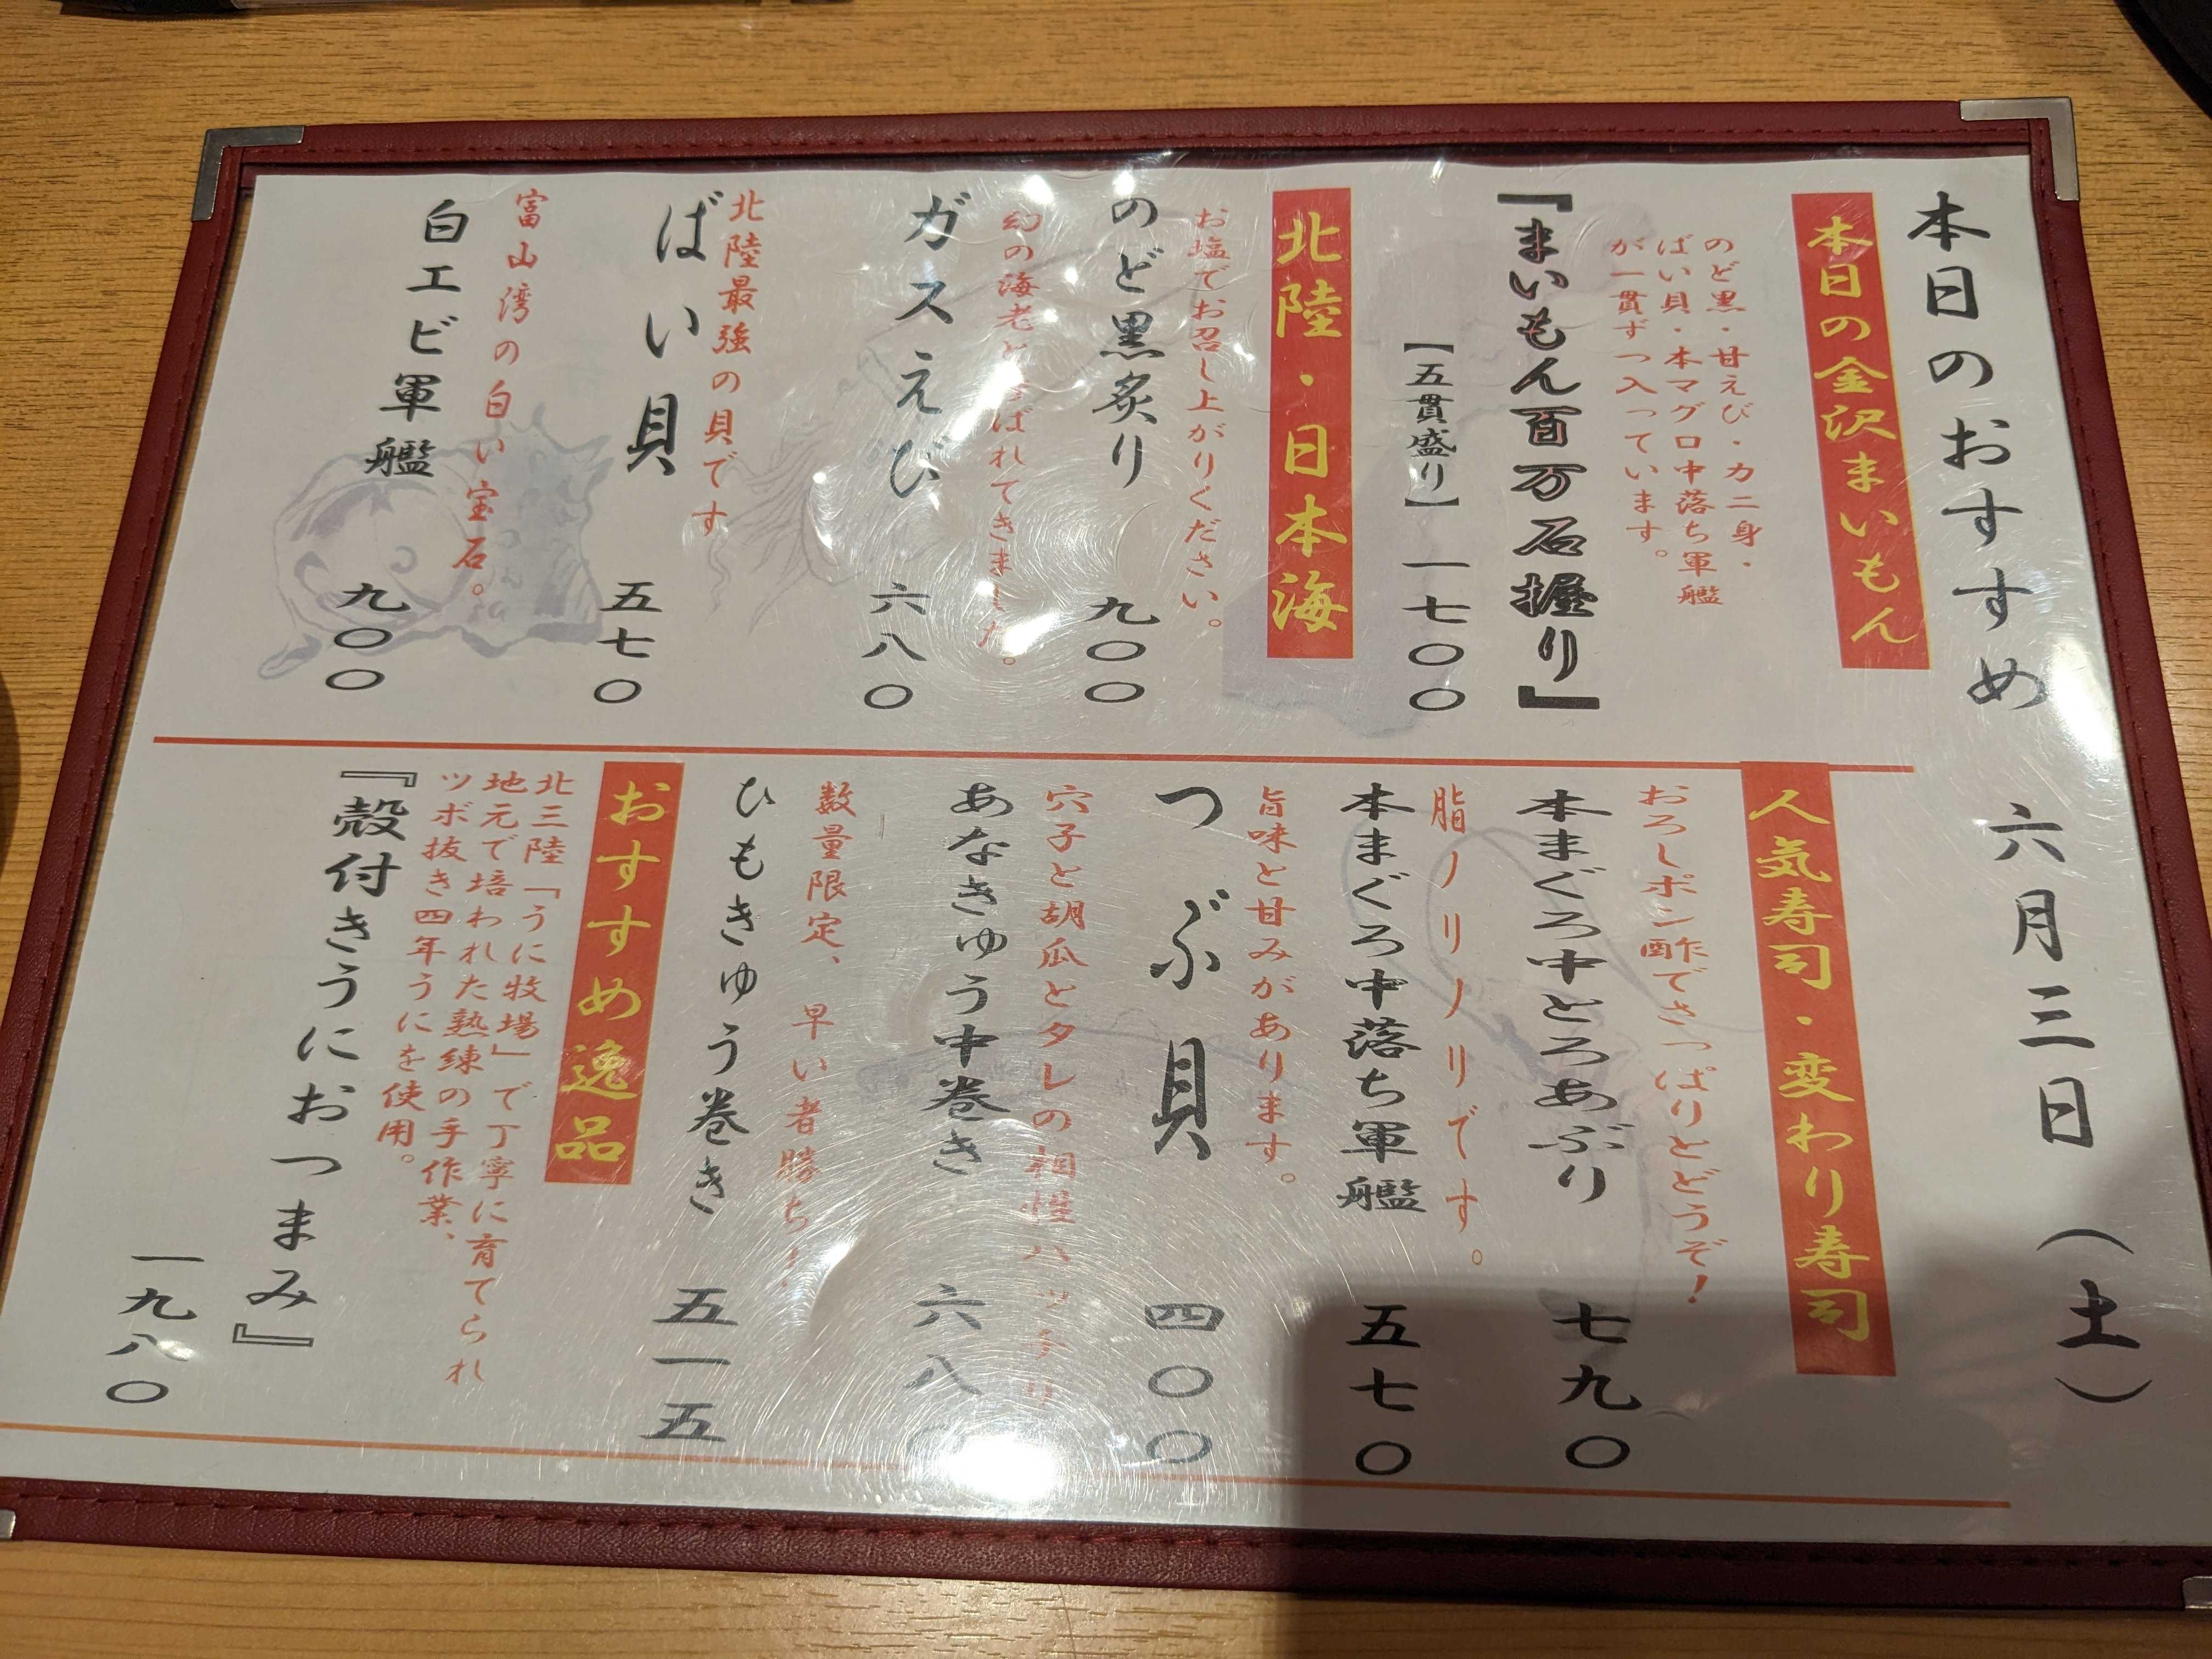 本日のおすすめ 六月三日（土）
本日の金沢まいもん
のど黒・甘えび・カニ身・
ばい貝・本マグロ中落ち軍艦
が一貫ずつ入っています。
『まいもん百万石握り』
【五貫盛り】 一七〇〇
北陸・日本海
お塩でお召し上がりください。
のど黒炙り 九〇〇
幻の海老とよばれてきました。
ガスえび 六八〇
北陸最強の貝です
ばい貝 五七〇
富山湾の白い宝石。
白エビ軍艦 九〇〇
人気寿司・変わり寿司
おろしポン酢でさっぱりとどうぞ！
本まぐろ中とろあぶり 七九〇
脂ノリノリです。
本まぐろ中落ち軍艦 五七〇
旨味と甘みがあります。
つぶ貝 四〇〇
穴子と胡瓜とタレの相性バッチリ
あなきゅう中巻き 六八
数量限定、早い者勝ち！
ひもきゅう巻き 五一五
おすすめ逸品
北三陸「うに牧場」で丁寧に育てられ
地元で培われた熟練の手作業、
ツボ抜き四年うにを使用。
『殻付きうにおつまみ』
一九八〇